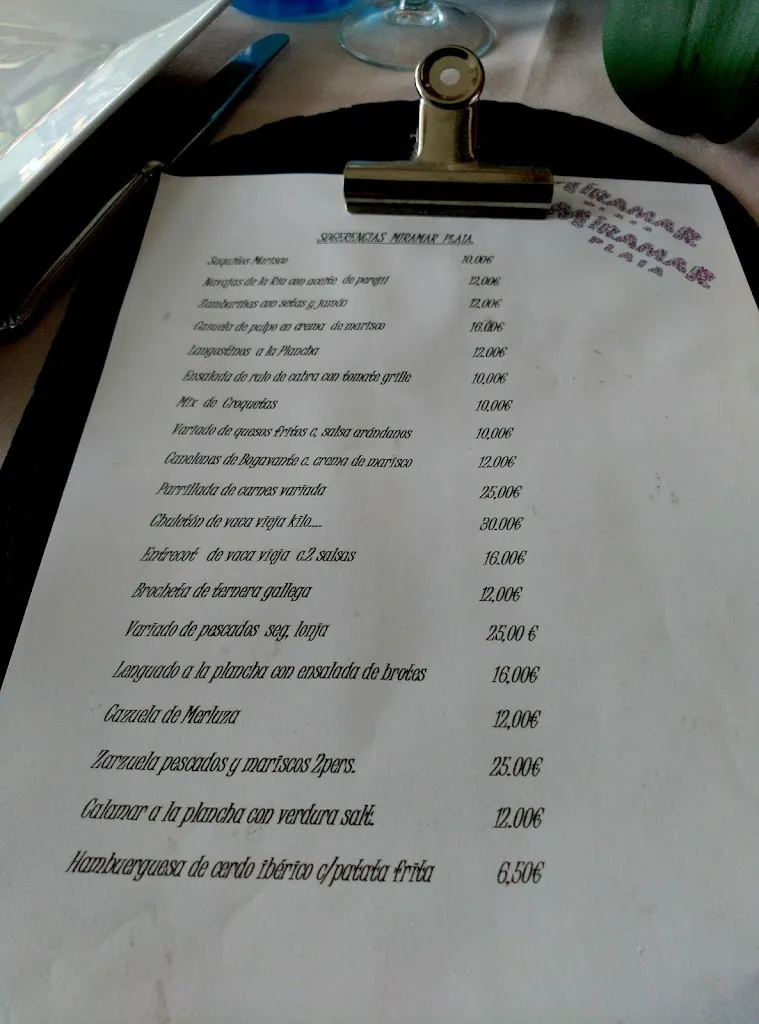 SUGERENCIAS MIRAMAR PLAIA.
MIRAMAR
PLAIA
MIRAMAR
PLAIA
Saquitos Marisco 10,00€
Navajas de la Ria con aceite de perejil 12,00€
Zamburiñas con setas y jamón 12,00€
Cazuela de pulpo en crema de marisco 16.00€
Langostinos a la Plancha 12.00€
Ensalada de rulo de cabra con tomate grille 10,00€
Mix de Croquetas 10,00€
Variado de quesos fritos c, salsa arándanos 10,00€
Canelones de Bogavante c. crema de marisco 12.00€
Parrillada de carnes variada 25,00€
Chuletón de vaca vieja kilo.... 30.00€
Entrecot de vaca vieja c.2 salsas 16.00€
Brocheta de ternera gallega 12,00€
Variado de pescados seg, lonja 25,00 €
Lenguado a la plancha con ensalada de brotes 16,00€
Cazuela de Merluza 12,00€
Zarzuela pescados y mariscos 2pers. 25.00€
Calamar a la plancha con verdura salt. 12.00€
Hambuerguesa de cerdo ibérico c/patata frita 6,50€